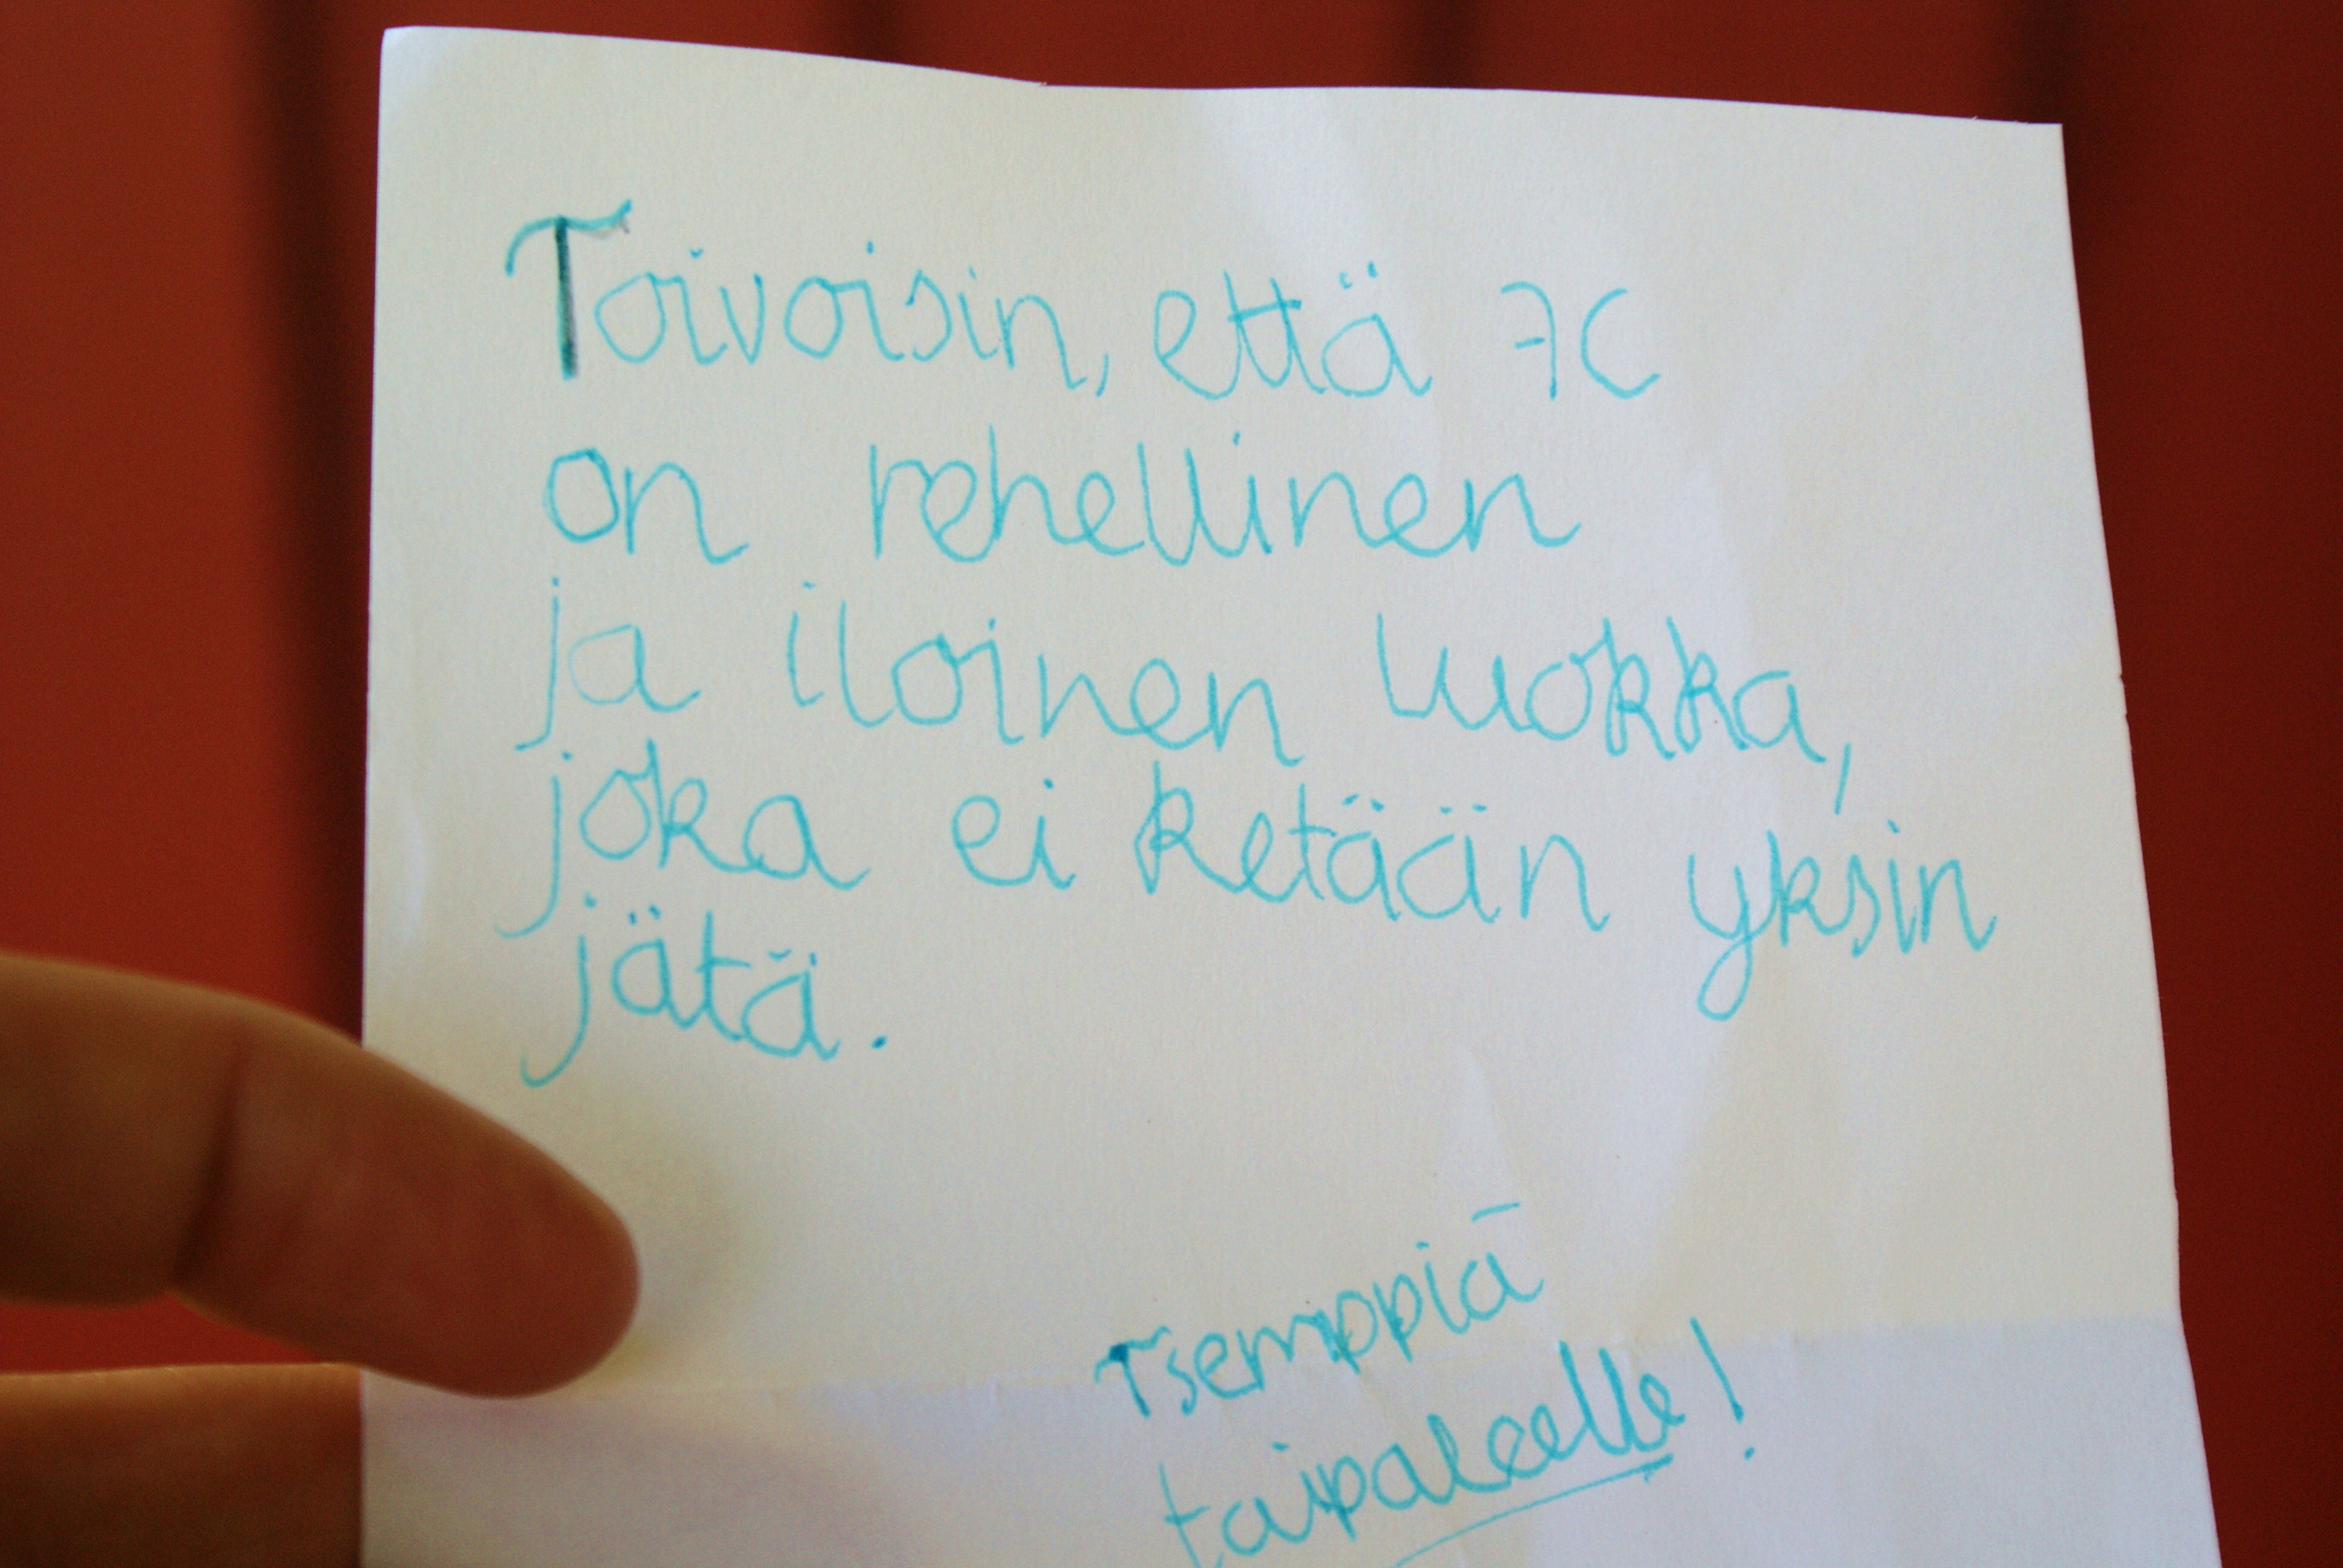 Toivoisin, että 7C
on rehellinen
ja iloinen luokka,
joka ei ketään yksin
jätä.
Tsemppiä
taipaleelle!